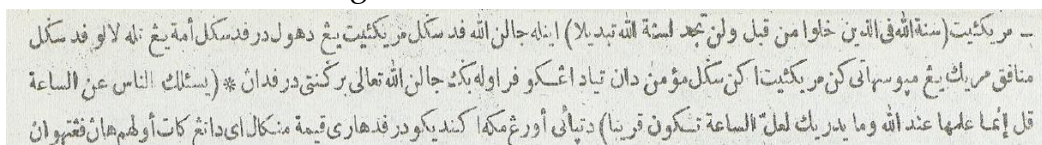 ـ مريكئيت (سنة الله في الذين خلوا من قبل ولن تجد لسنة الله تبديلا) اينله جالن الله فد سكل مريكئيت يڠ دهول در فد سكل أمة يڠ تله لالو فد سكل
منافق مريك يڠ مپوسهاتي كن مريكئيت اكن سكل مؤمن دان تياد اڠكو فراوله بݢ جالن الله تعالى بركنتي در فدان * (يسئلك الناس عن الساعة
قل إنما علمها عند الله وما يدريك لعل الساعة تكون قريبا) دتپاٴني أورڠ مكه اكنديكو در فد هاري قيمة منكال اي داتڠ كات أولهم هاڽ فڠتهوان